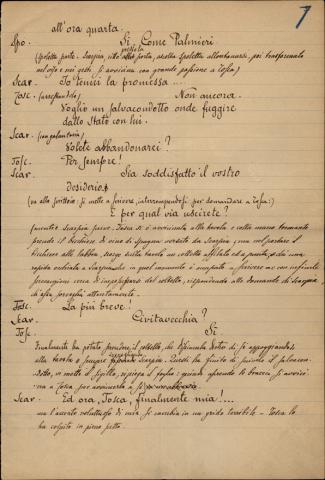 7
all'ora quarta.
Spo. Sì. Come Palmieri.
(Spoletta parte. Scarpia, ritto presso la porta, ascolta Spoletta allontanarsi, poi trasformato
nel viso e nei gesti si avvicina con grande passione a Tosca)
Scar. Io tenni la promessa...
Tosc. (arrestandolo) Non ancora.
Voglio un salvacondotto onde fuggire
dallo Stato con lui.
Scar. (con galanteria)
Volete abbandonarci?
Tosc. Per sempre!
Scar. Sia soddisfatto il vostro
desiderio.
(va allo scrittoio: si mette a scrivere, interrompendosi per domandare a Tosca:)
E per qual via uscirete?
(mentre Scarpia scrive, Tosca si è avvicinata alla tavola e colla mano tremante
prende il bicchiere di vino di Spagna versato da Scarpia; ma nel portare il
bicchiere alle labbra, scorge sulla tavola un coltello affilato ed a punta; dà una
rapida occhiata a Scarpia che in quel momento è occupato a scrivere e con infinite
precauzioni cerca di impossessarsi del coltello, rispondendo alle domande di Scarpia,
ch'essa sorveglia attentamente.
Tosc. La più breve!
Scar. Civitavecchia?
Tosc. Sì.
Finalmente ha potuto prendere il coltello, che dissimula dietro di sè appoggiandosi
alla tavola e sempre sorvegliando Scarpia. Questi ha finito di scrivere il salvacon-
dotto, vi mette il sigillo, ripiega il foglio: quindi aprendo le braccia si avvici-
na a Tosca per avvincerla a sè
Scar. Ed ora, Tosca, finalmente mia!...
ma l'accento voluttuoso di mia si cambia in un grido terribile - Tosca lo
ha colpito in pieno petto